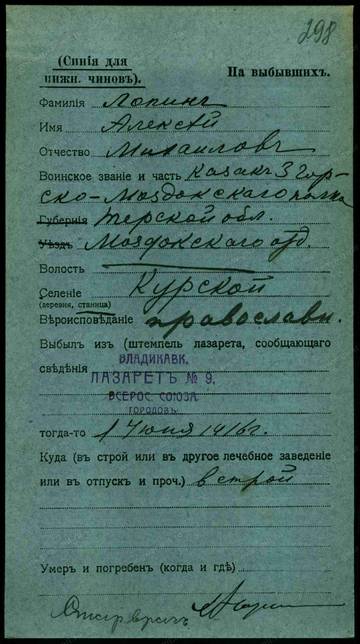 298
(Синія для нижн. чиновъ).
На выбывшихъ.
Фамилія Лопинъ
Имя Алексѣй
Отчество Михаиловъ
Воинское званіе и часть Казакъ 3 Гор-
ско-Моздокскаго полка
Губернія Терской обл.
Уѣздъ Моздокскаго отд.
Волость
Селеніе Курской
(деревня, станица)
Вѣроисповѣданіе православн.
Выбылъ изъ (штемпель лазарета, сообщающаго
свѣдѣнія)
ВЛАДИКАВК.
ЛАЗАРЕТЪ № 9.
ВСЕРОС. СОЮЗА
ГОРОДОВЪ.
тогда-то 1 Юня 1916г.
Куда (въ строй или въ другое лечебное заведеніе
или въ отпускъ и проч.) в строй
Умеръ и погребенъ (когда и гдѣ)
Стар врачъ